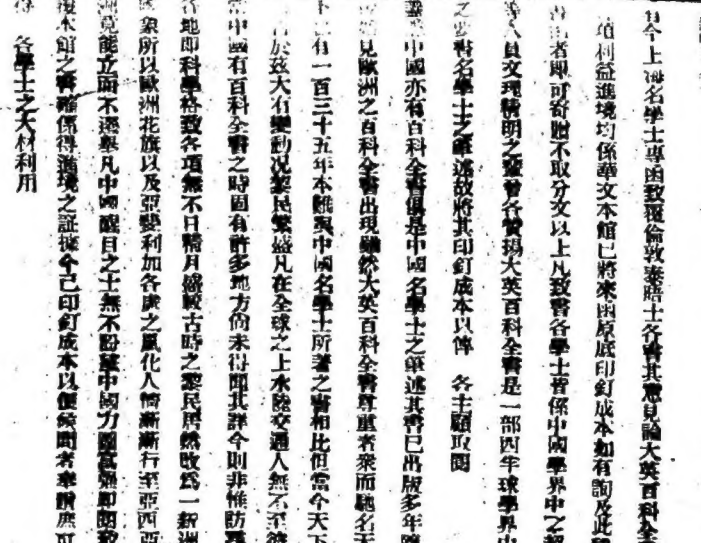 有今上海名學士專函致覆倫敦泰晤士各書其意見論大英百科全
頗利益進境均係華文本館已將來函原底印釘成本如有詢及此
者即可寄贈不取分文以上凡致書各學士皆係中國學界中之
等人員文理精明之輩曾各贊揚大英百科全書是一部四半球學界中
之要書名學士之筆述故將其印釘成本以俾 各士顧取閱
中國亦有百科全書俱是中國名學士之筆述其書已出版多年
見歐洲之百科全書出現雖然大英百科全書尊重者衆而馳名天
有一百三十五年本難與中國名學士所著之書相比但當今天下
於茲大有變動况黎民繁盛凡在全球之上水陸交通人無不至
中國有百科全書之時固有許多地方尚未得聞其詳今則非惟訪
各地即科學格致各項無不日精月盛較古時之黎民居然改為一新洲
象所以歐洲花旗以及亞斐利加各處之風化人情漸漸行至亞西亞
洲竟能立面不遷舉凡中國醒目之士無不盼望中國力圖富強即閱致
覆本館之書確係得進境之証據今已印釘成本以便候問者奉贈庶可
得 各學士之大材利用